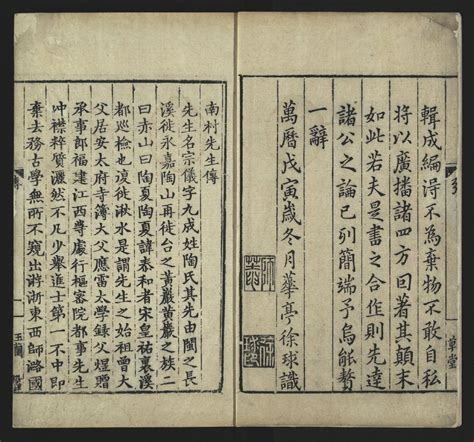 草堂
輯成編淂不為棄物不敢自私
將以廣播諸四方曰著其顛末
如此若夫是書之合作則先達
諸公之論已列簡端予烏能贅
一辭
萬曆戊寅歲冬月華亭徐球識
南村先生傳
先生名宗儀字九成姓陶氏其先由閩之長
溪徙永嘉陶山再徙台之黃巖黃巖之族二
曰赤山曰陶夏陶夏諱春和者宋皇祐裏溪
都巡檢也復徙湫水是謂先生之始祖曾大
父居安太府寺簿大父應雷太學錄父煜贈
承事郎福建江西等處行樞密院都事先生
冲襟粹質灑然不凡少舉進士第一不中即
棄去務古學無所不窺出游浙東西師潞國
玉蘭